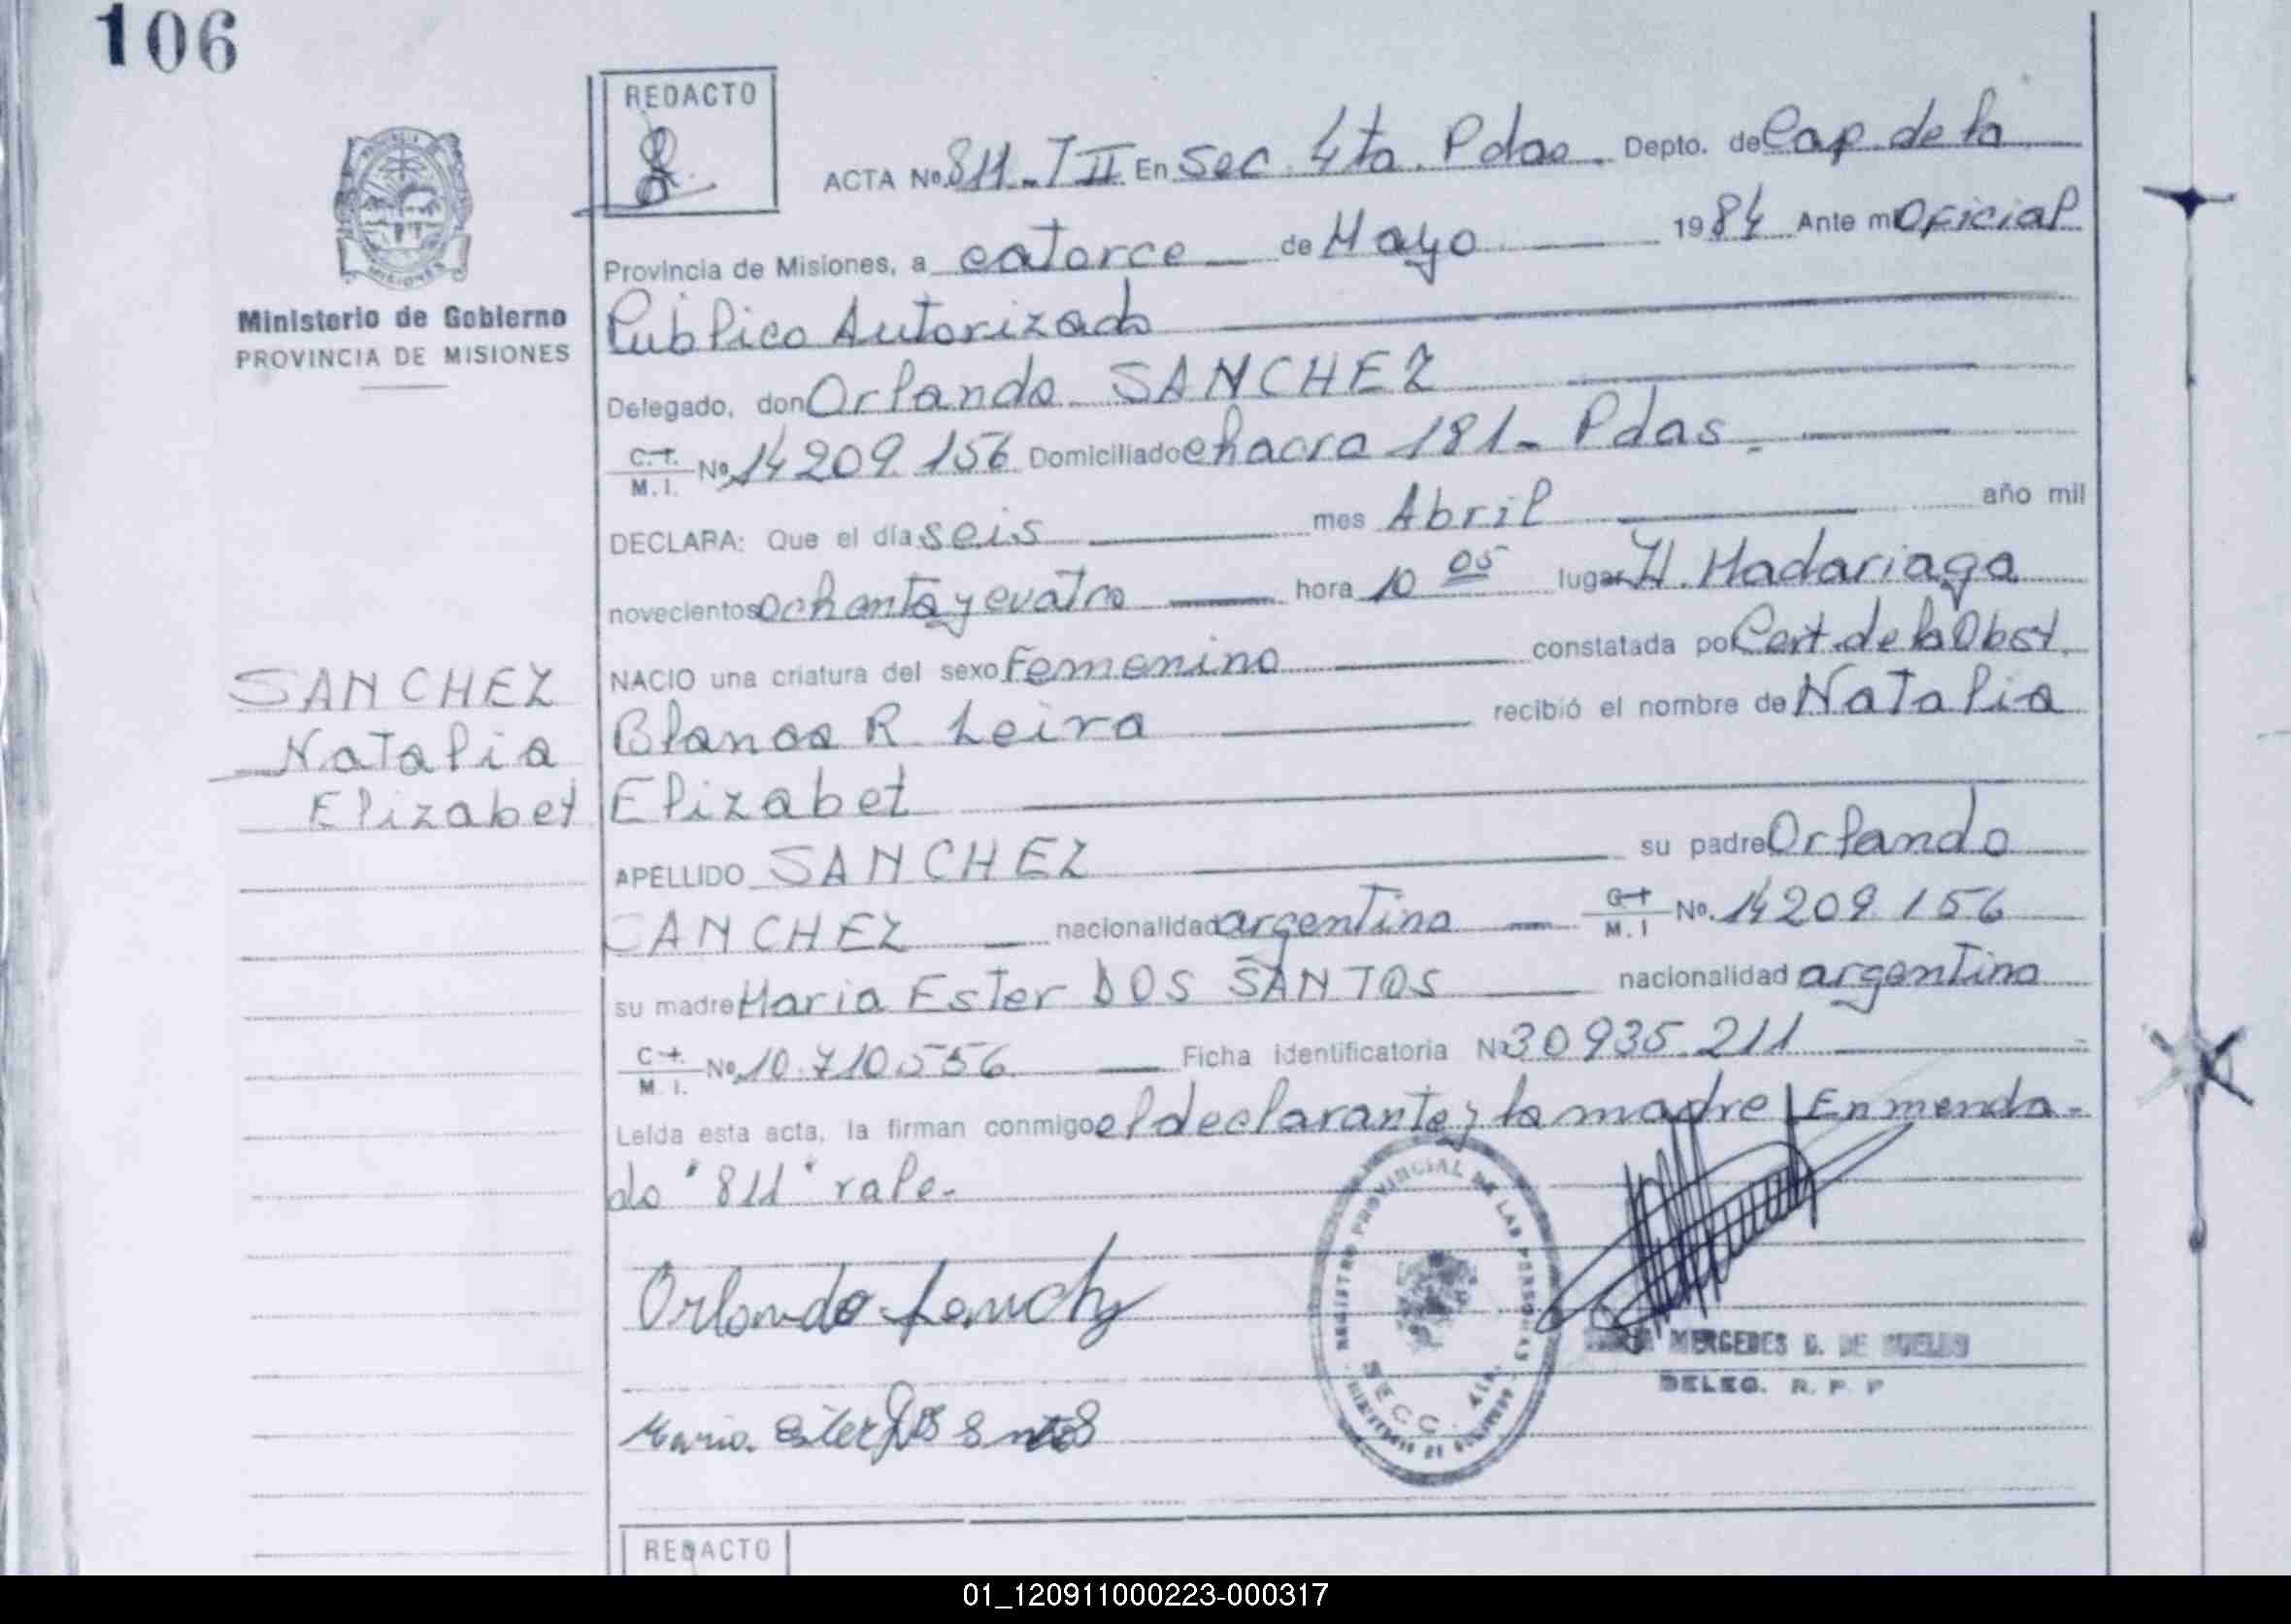 106
REDACTO
ACTA No. 811-TII En Sec. 4ta. Pdas. Depto. de Cap. de la
Provincia de Misiones, a catorce de Mayo 1984 Ante mi Oficial
Ministerio de Gobierno
PROVINCIA DE MISIONES
Público Autorizado
Delegado, don Orlando SANCHEZ
C.I. M.I. No 14209.156 Domiciliado chacra 181- Pdas.
DECLARA: Que el día seis mes Abril año mil
novecientos ochenta y cuatro hora 10 05 lugar H. Madariaga
NACIO una criatura del sexo Femenino constatada por Cert. de la Obst.
SANCHEZ
Natalia
Elizabet
Blanca R. Leiva recibió el nombre de Natalia
Elizabet
APELLIDO SANCHEZ su padre Orlando
SANCHEZ nacionalidad argentina C.I. M.I No. 14209.156
su madre Maria Ester DOS SANTOS nacionalidad argentina
C.I. M.I. No. 10.710.556 Ficha identificatoria No 30935.211
Leída esta acta, la firman conmigo el declarante y la madre/Enmenda-
do "811" vale.
Orlando Sanchez
Maria Ester Dos Santos
REGISTRO PROVINCIAL DE LAS PERSONAS
SECC. 4ta.
MINISTERIO DE GOBIERNO
MERCEDES G. DE
DELEG. R. P. P
REDACTO
01_120911000223-000317